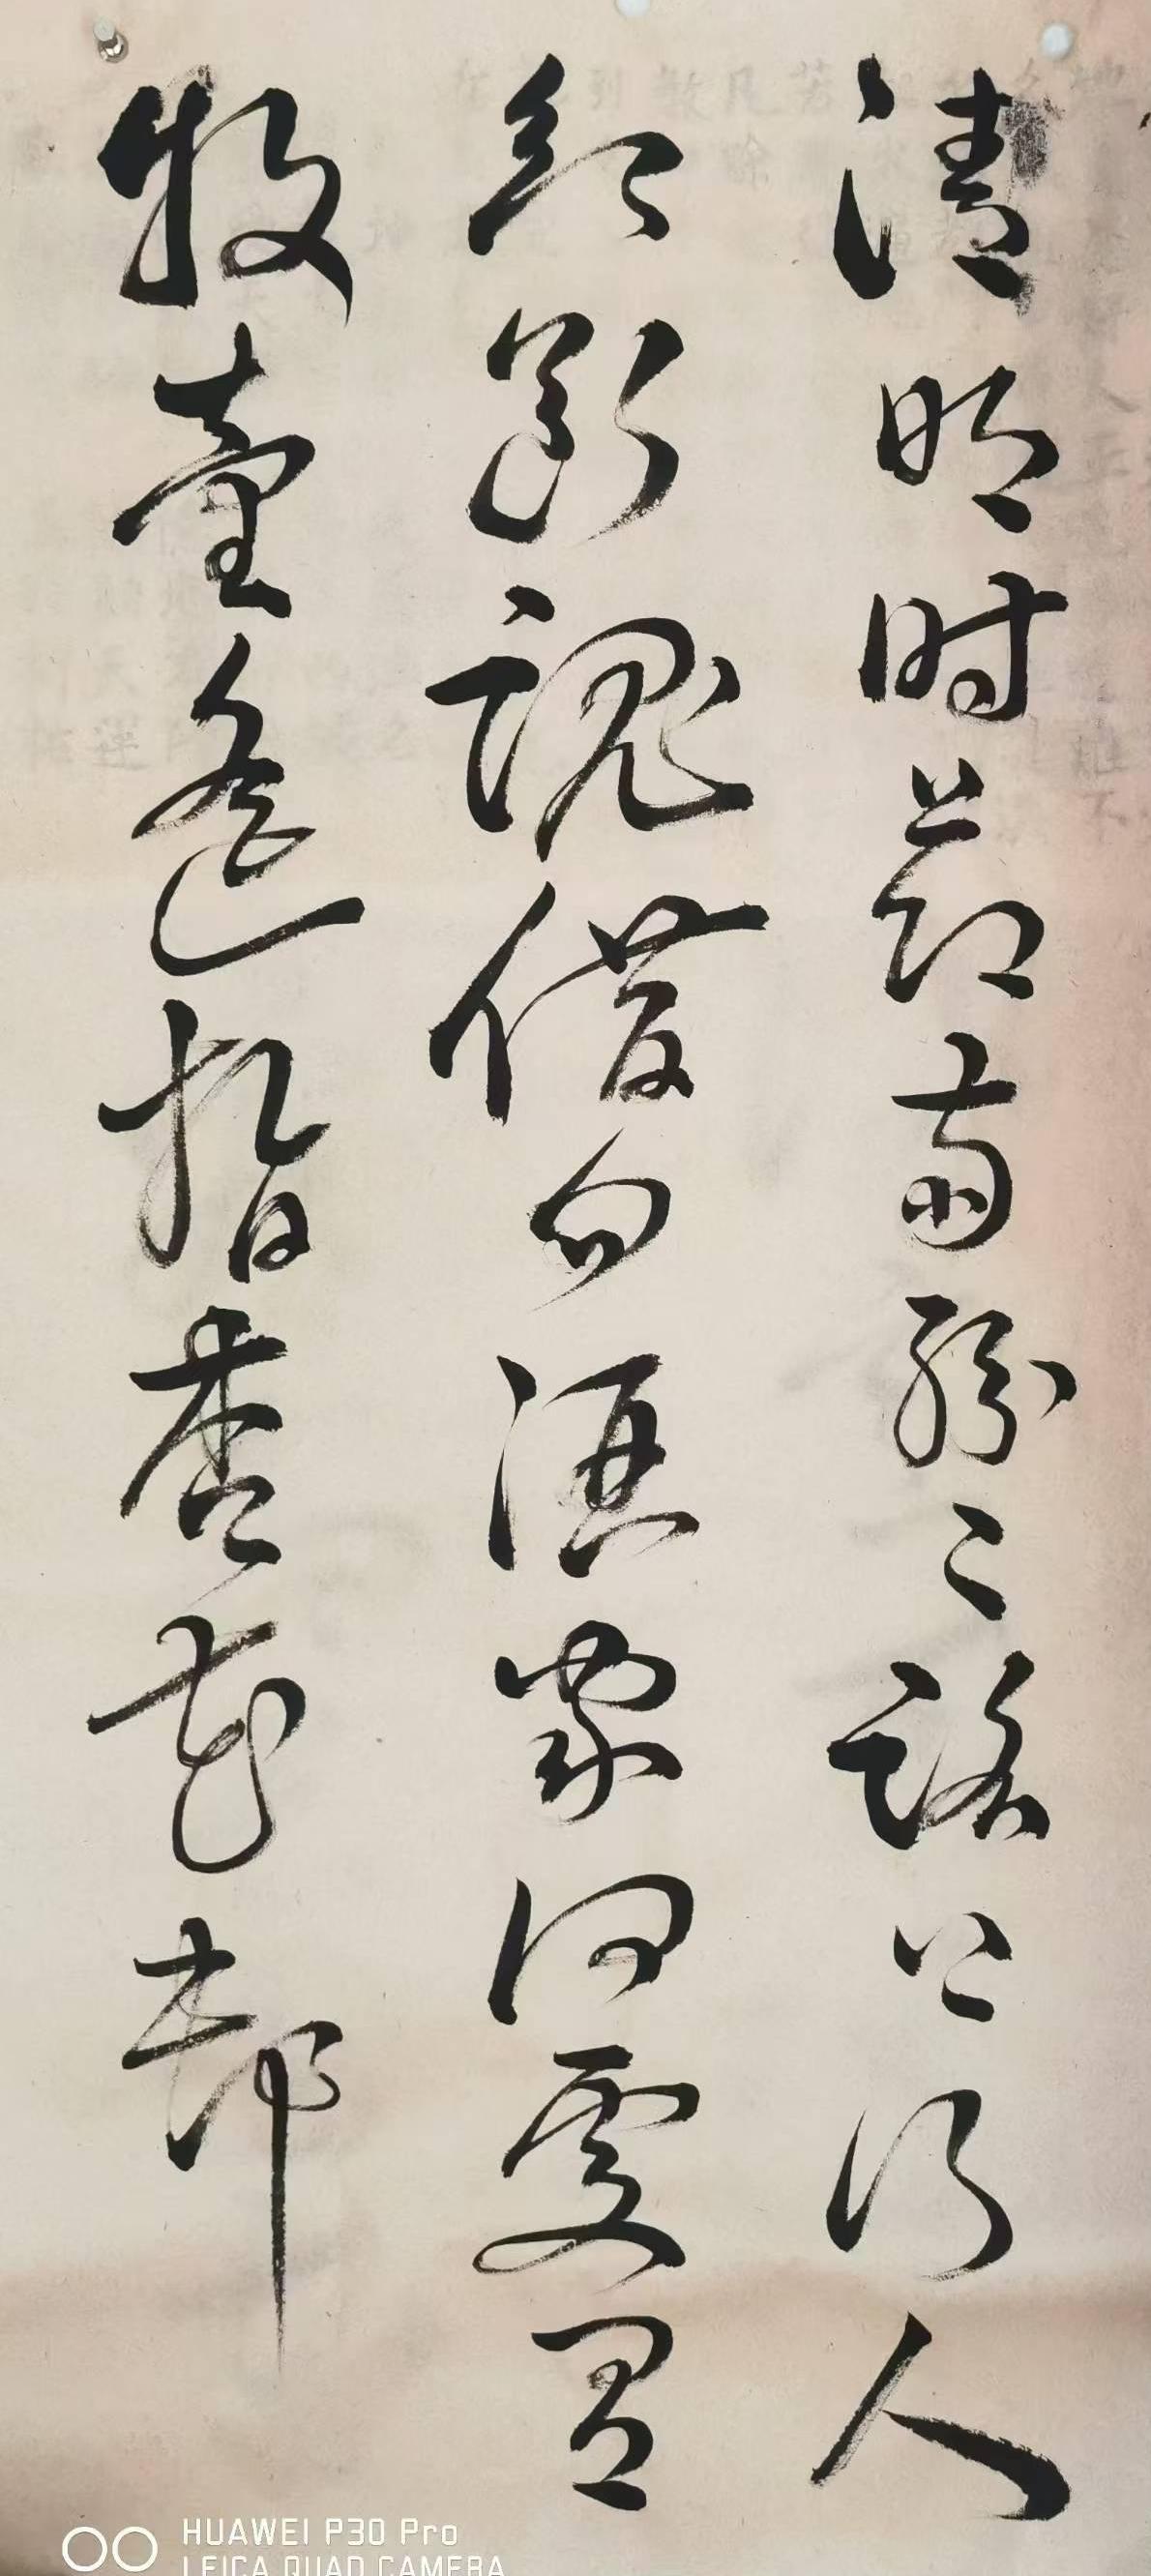 清明時節雨紛々路上行人
欲斷魂借問酒家何處有
牧童遙指杏花邨
HUAWEI P30 Pro
LEICA QUAD CAMERA